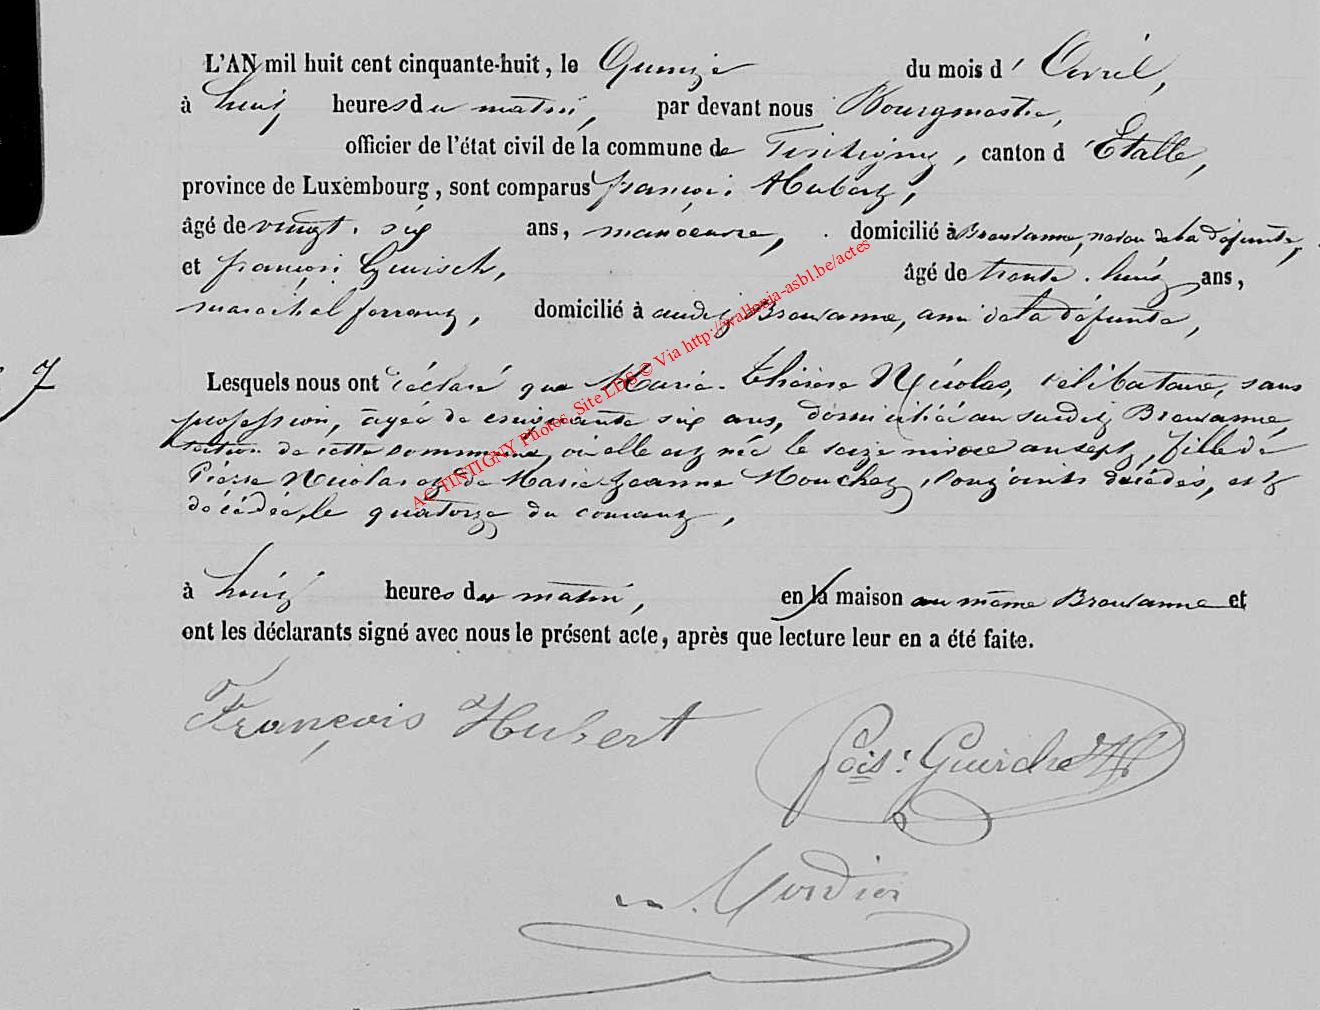 L'AN mil huit cent cinquante-huit, le Quinze du mois d' Avril,
à huit heures du matin, par devant nous Bourgmestre,
officier de l'état civil de la commune de Tintigny, canton d'Etalle,
province de Luxembourg, sont comparus françois Hubert,
âgé de vingt-six ans, manoeuvre, domicilié à Breuvanne, neveu de la défunte,
et françois Guirsch, âgé de trente-huit ans,
marechal ferrant, domicilié à audit Breuvanne, ami de la défunte,
7 Lesquels nous ont déclaré que Marie-Thérèse Nicolas, celibataire, sans
profession, agée de cinquante six ans, domiciliée au susdit Breuvanne,
section de cette commune, où elle est née le seize nivose an sept, fille de
Pierre Nicolas et de Marie Jeanne Mouchet, conjoints décédés, est
décédée, le quatorze du courant,
à huit heures du matin, en la maison au même Breuvanne et
ont les déclarants signé avec nous le présent acte, après que lecture leur en a été faite.
François Hubert
fcois: Guirche
ACTINTIGNY Photos, Site LDS © Via http://wallonia-asbl.be/actes